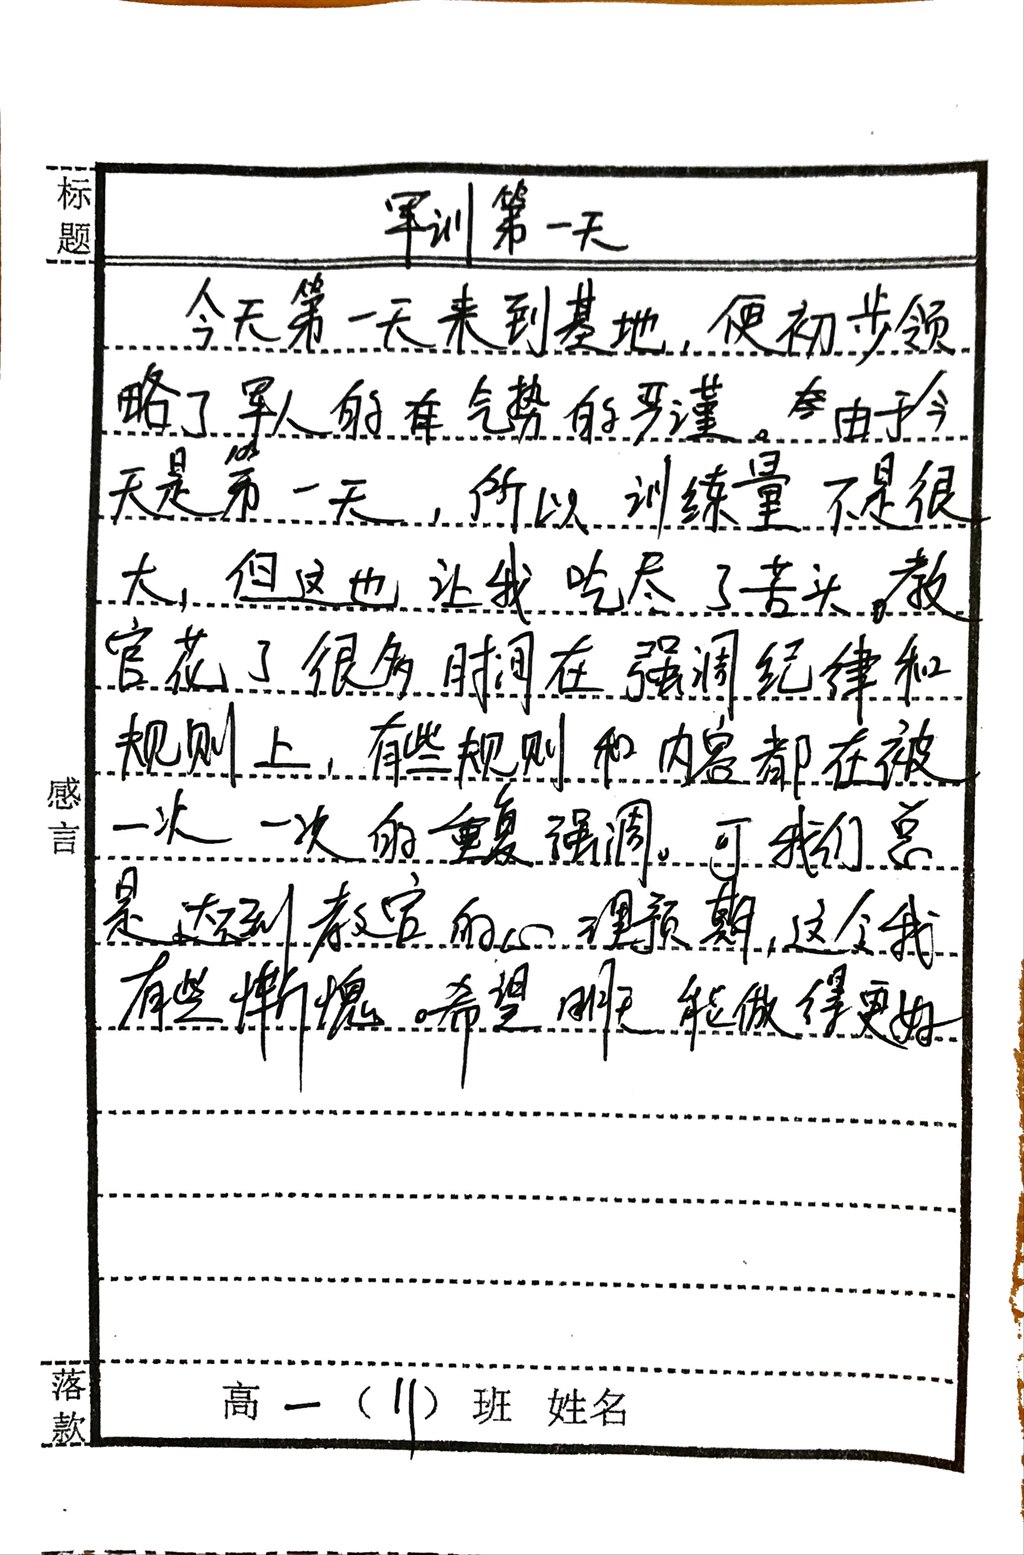 标题
军训第一天
今天第一天来到基地，便初步领
略了军人的有气势的严谨。由于今
天是第一天，所以训练量不是很
大，但这也让我吃尽了苦头。教
官花了很多时间在强调纪律和
规则上，有些规则和内容都在被
感言
一次一次的重复强调。可我们总
是达到教官的心理预期，这令我
有些惭愧。希望明天能做得更好
落款
高一（11）班 姓名